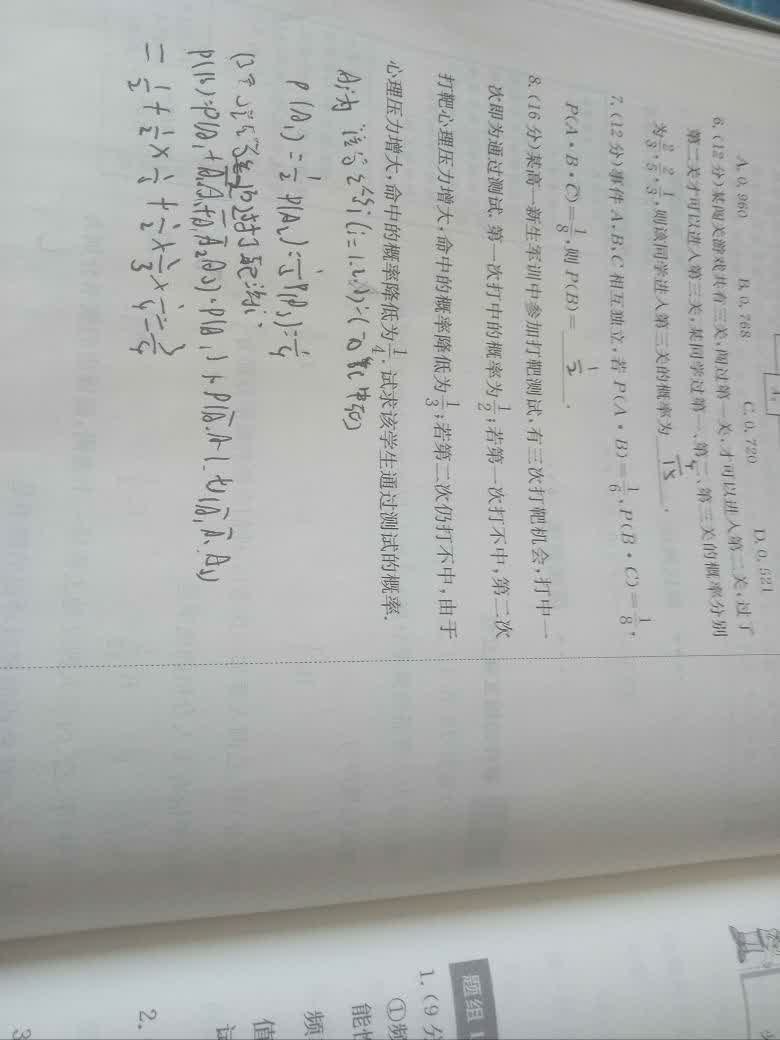 A. 0.960 B. 0.768 C. 0.720 D. 0.521
6. (12分)某闯关游戏共有三关,闯过第一关,才可以进入第二关,过了
第二关才可以进入第三关,某同学过第一、第二、第三关的概率分别
为2/3,2/5,1/3,则该同学进入第三关的概率为
7. (12分)事件A,B,C相互独立,若P(A·B)=1/6,P(B̄·C)=1/8,
P(A·B·C̄)=1/8,则P(B)= 1/2 .
8. (16分)某高一新生军训中参加打靶测试,有三次打靶机会,打中一
次即为通过测试.第一次打中的概率为1/2;若第一次打不中,第二次
打靶心理压力增大,命中的概率降低为1/3;若第二次仍打不中,由于
心理压力增大,命中的概率降低为1/4.试求该学生通过测试的概率.
Ai为
P(A1)=1/2 P(A2)=1/3 P(A3)=1/4
P(B)=P(A1+Ā1A2+Ā1Ā2A3)=P(A1)+P(Ā1·A2)+P(Ā1·Ā2·A3)
=1/2+1/2×1/3+1/2×2/3×1/4=3/4
题组
1. (9分
①频
能性
频
值
试
2.
3